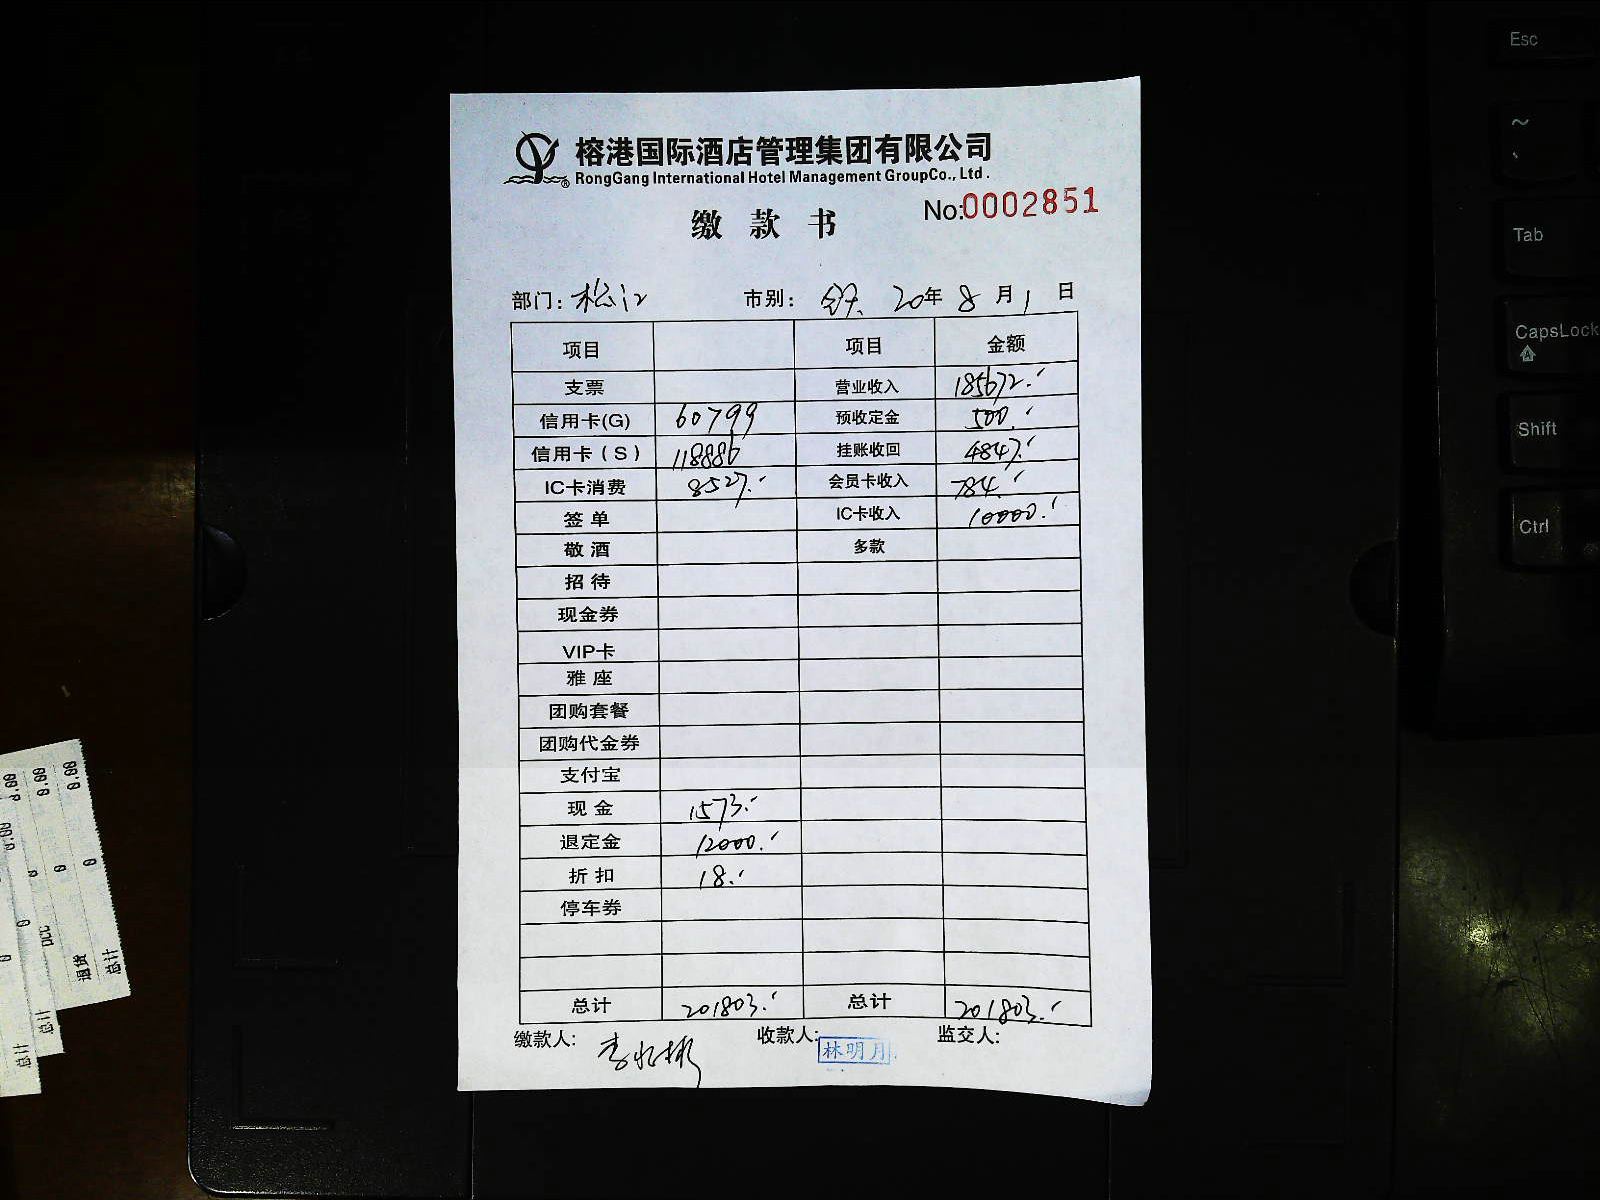 榕港国际酒店管理集团有限公司
RongGang International Hotel Management GroupCo., Ltd .
No:0002851
缴 款 书
部门: 松江 市别: 20年 8 月 1 日
项目 项目 金额
支票 营业收入 185672.-
信用卡(G) 60799 预收定金 500.-
信用卡(S) 118886 挂账收回 4847.-
IC卡消费 8527.- 会员卡收入 784.-
签单 IC卡收入 10000.-
敬酒 多款
招待
现金券
VIP卡
雅座
团购套餐
团购代金券
支付宝
现金 1573.-
退定金 12000.-
折扣 18.-
停车券
总计 201803.- 总计 201803.-
缴款人: 收款人: 林明月 监交人:
Esc
~
Tab
CapsLock
Shift
Ctrl
总计
0.00
0
总计
DCC
0
0.00
退货
0
0.00
总计